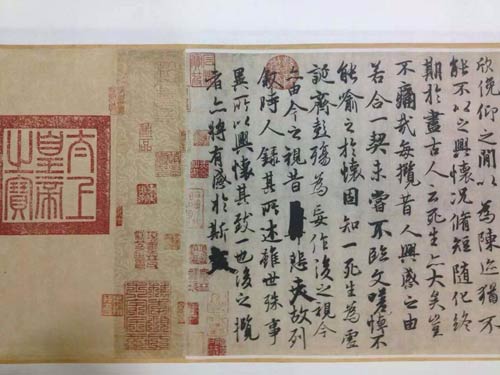 欣俛仰之間以為陳迹猶不
能不以之興懷況脩短隨化終
期於盡古人云死生亦大矣豈
不痛哉每攬昔人興感之由
若合一契未嘗不臨文嗟悼不
能喻之於懷固知一死生為虛
誕齊彭殤為妄作後之視今
亦由今之視昔悲夫故列
敘時人錄其所述雖世殊事
異所以興懷其致一也後之攬
者亦將有感於斯文
太上
皇帝
之寶